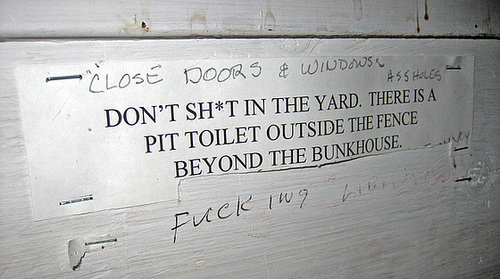 "CLOSE DOORS & WINDOWS"
ASSHOLES
DON'T SH*T IN THE YARD. THERE IS A
PIT TOILET OUTSIDE THE FENCE
BEYOND THE BUNKHOUSE.
FUCKING